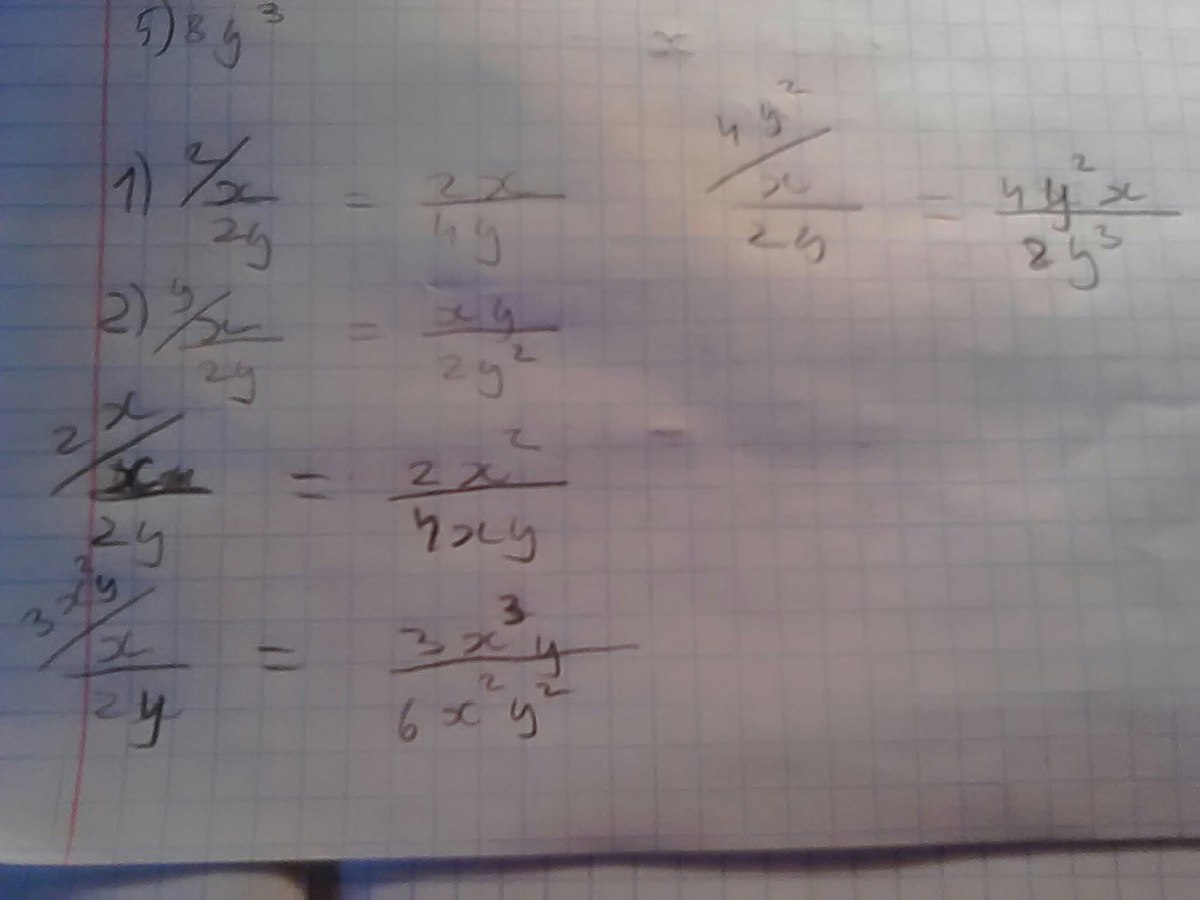 5) 8y³
1) ²/ x/2y = 2x/4y
4y²/ x/2y = 4y²x/8y³
2) y/ x/2y = xy/2y²
2x/ x/2y = 2x²/4xy
3x²y/ x/2y = 3x³y/6x²y²